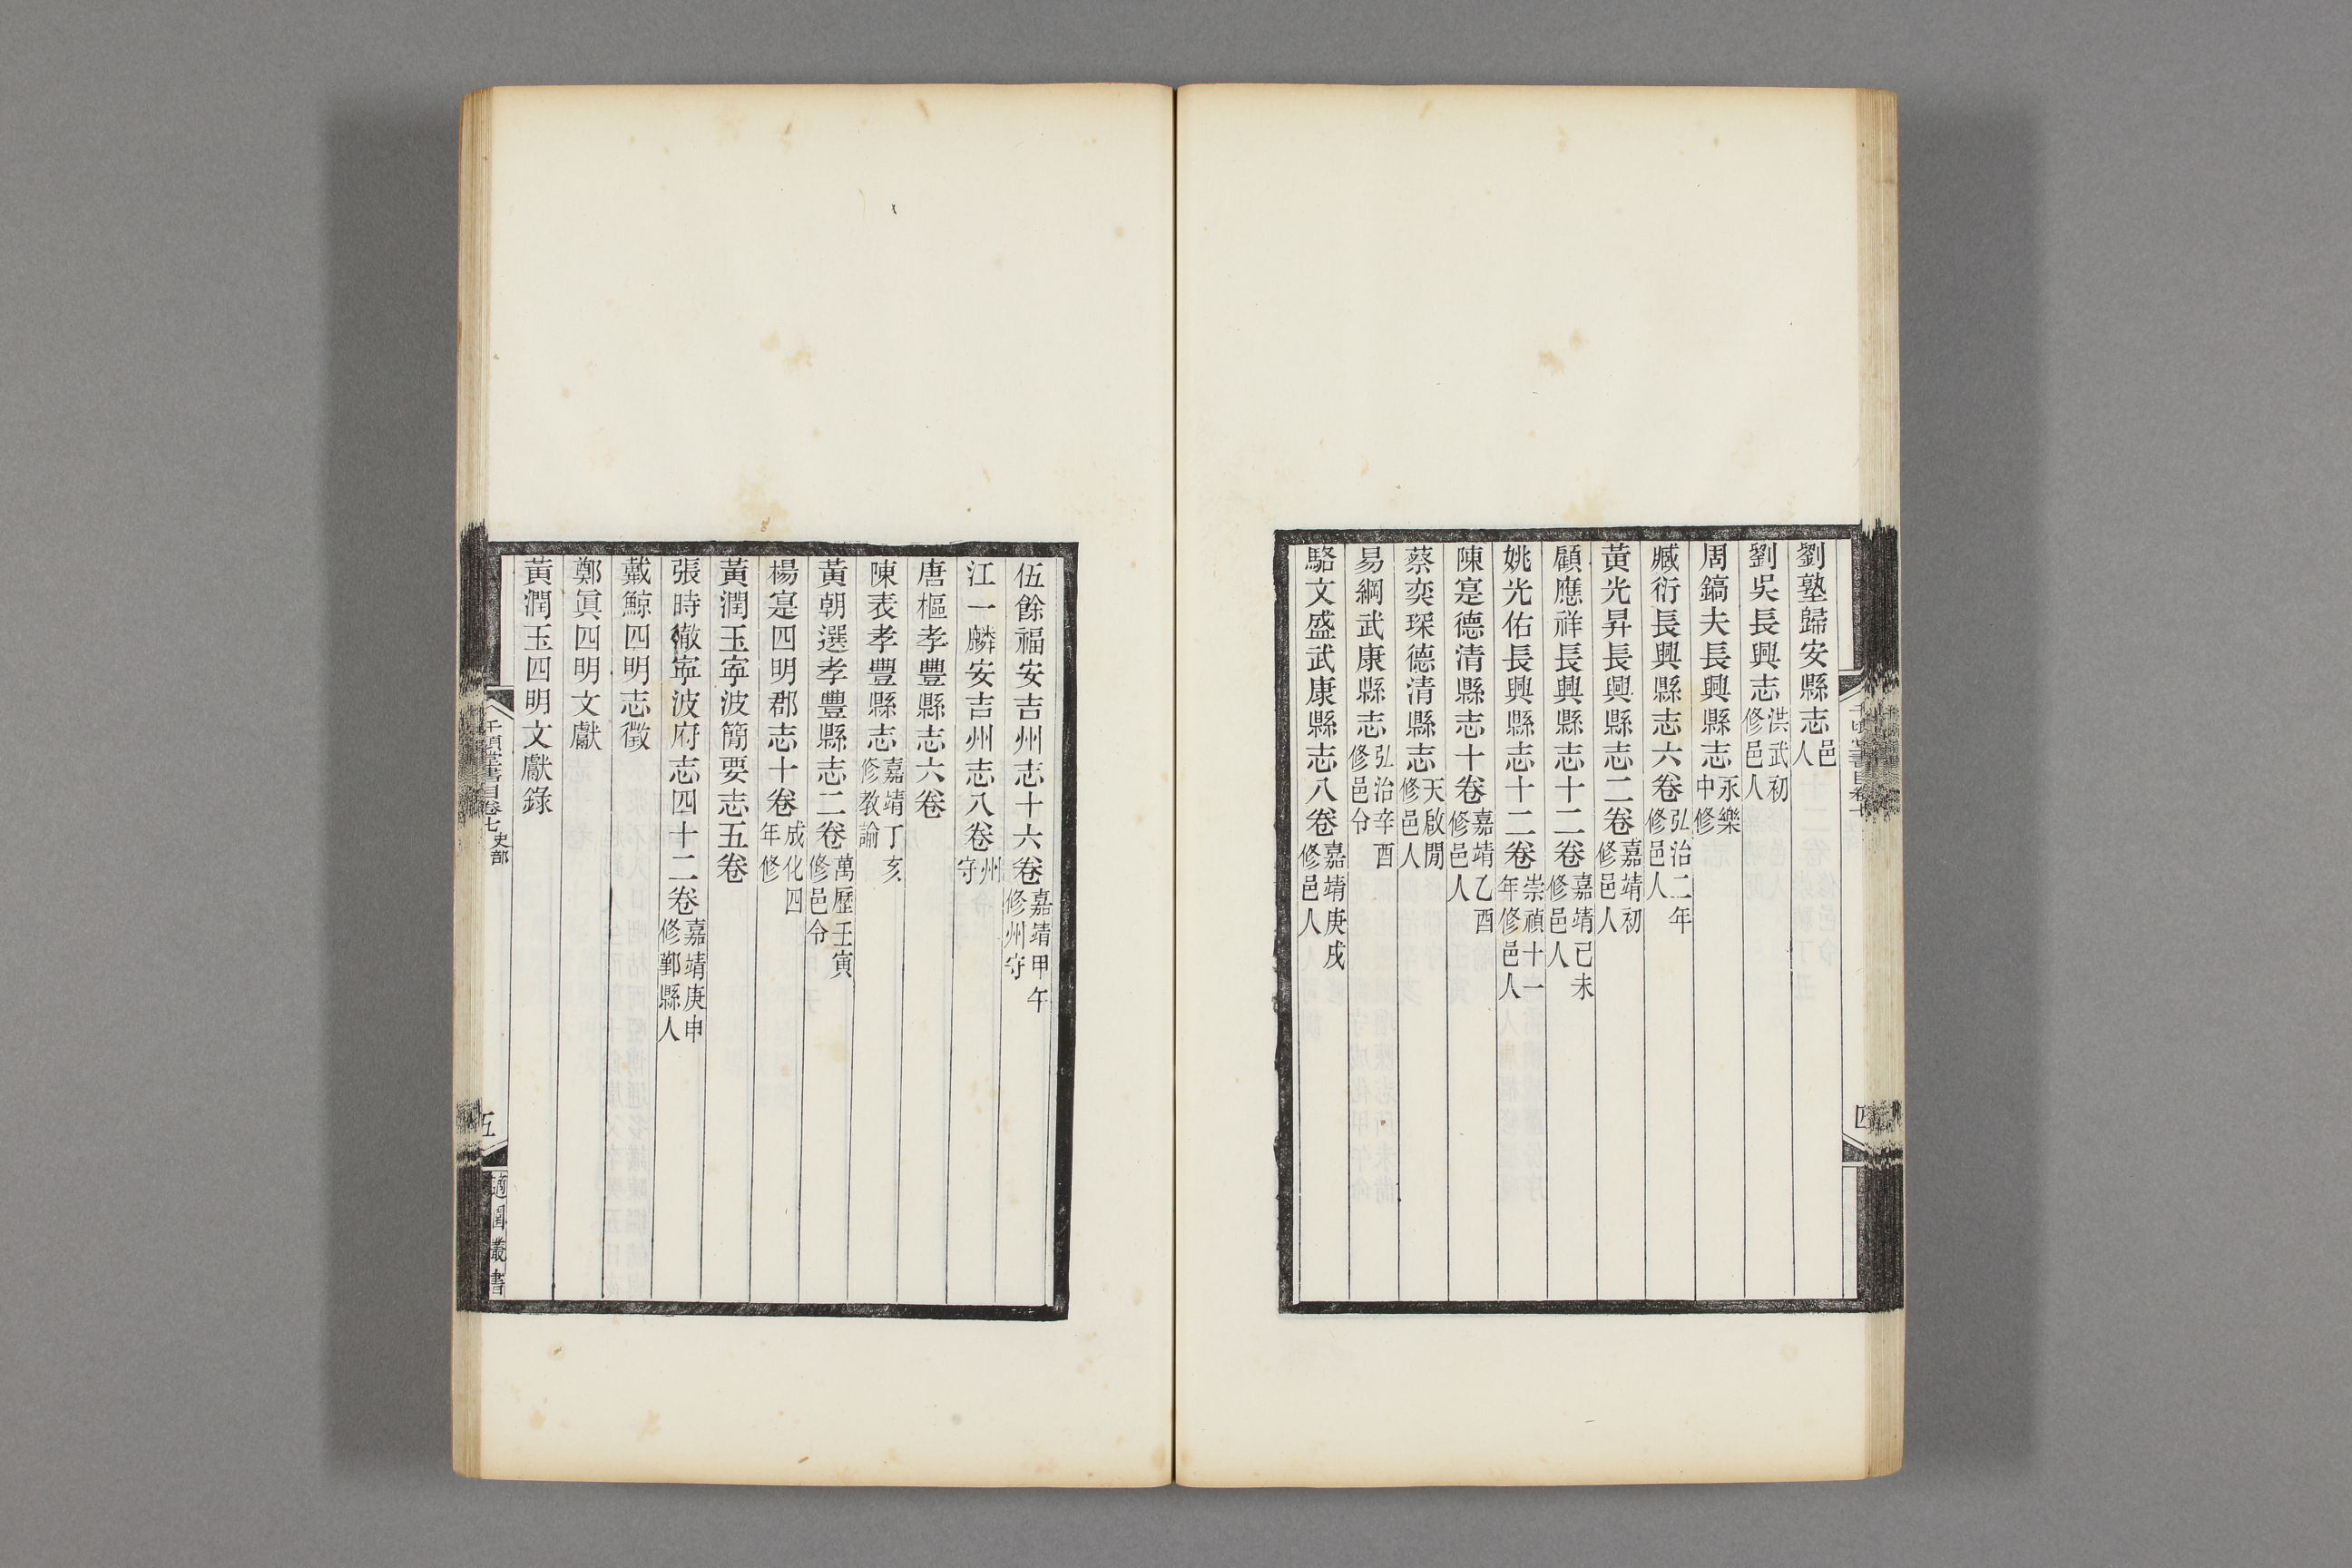 劉塾歸安縣志邑人
劉吳長興志洪武初修邑人
周鎬夫長興縣志永樂中修
臧衍長興縣志六卷弘治二年修邑人
黃光昇長興縣志二卷嘉靖初修邑人
顧應祥長興縣志十二卷嘉靖己未修邑人
姚光佑長興縣志十二卷崇禎十一年修邑人
陳寔德清縣志十卷嘉靖乙酉修邑人
蔡奕琛德清縣志天啟閒修邑人
易綱武康縣志弘治辛酉修邑令
駱文盛武康縣志八卷嘉靖庚戌修邑人
四
伍餘福安吉州志十六卷嘉靖甲午修州守
江一麟安吉州志八卷州守
唐樞孝豐縣志六卷
陳表孝豐縣志嘉靖丁亥修教諭
黃朝選孝豐縣志二卷萬歷壬寅修邑令
楊寔四明郡志十卷成化四年修
黃潤玉寧波簡要志五卷
張時徹寧波府志四十二卷嘉靖庚申修鄞縣人
戴鯨四明志徵
鄭眞四明文獻
黃潤玉四明文獻錄
千頃堂書目卷七史部
五
適園叢書